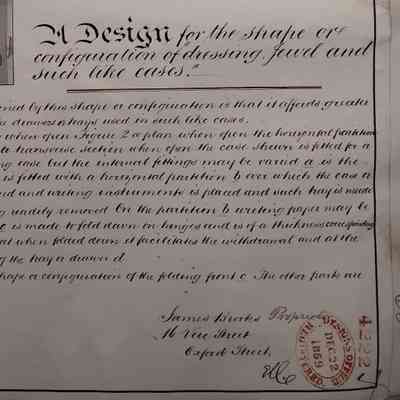 A Design for the shape or
configuration of "dressing, Jewel and
such like cases."
ned by this shape or configuration is that it affords greater
drawers or trays used in such like cases.
when open Figure 2 a plan when open the horizontal partition
transverse section when open the case shewn is fitted for a
ing case but the internal fittings may be varied a is the
is filled with a horizontal partition b over which the case a
and writing instruments is placed and such tray is made
g readily removed On the partition b writing paper may be
c is made to fold down on hinges and is of a thickness corresponding
at when folded down it facilitates the withdrawal and at the
g the tray or drawer d
shape or configuration of the folding front c. The other parts are
James Brooks Proprietor
16 Vere Street
Oxford Street
DEC 22
1859
4222
REGISTERED
DESIGNS OFFICE